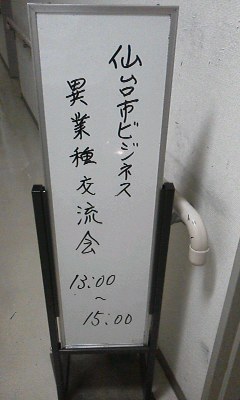 仙台市ビジネス
異業種交流会
13:00
～
15:00